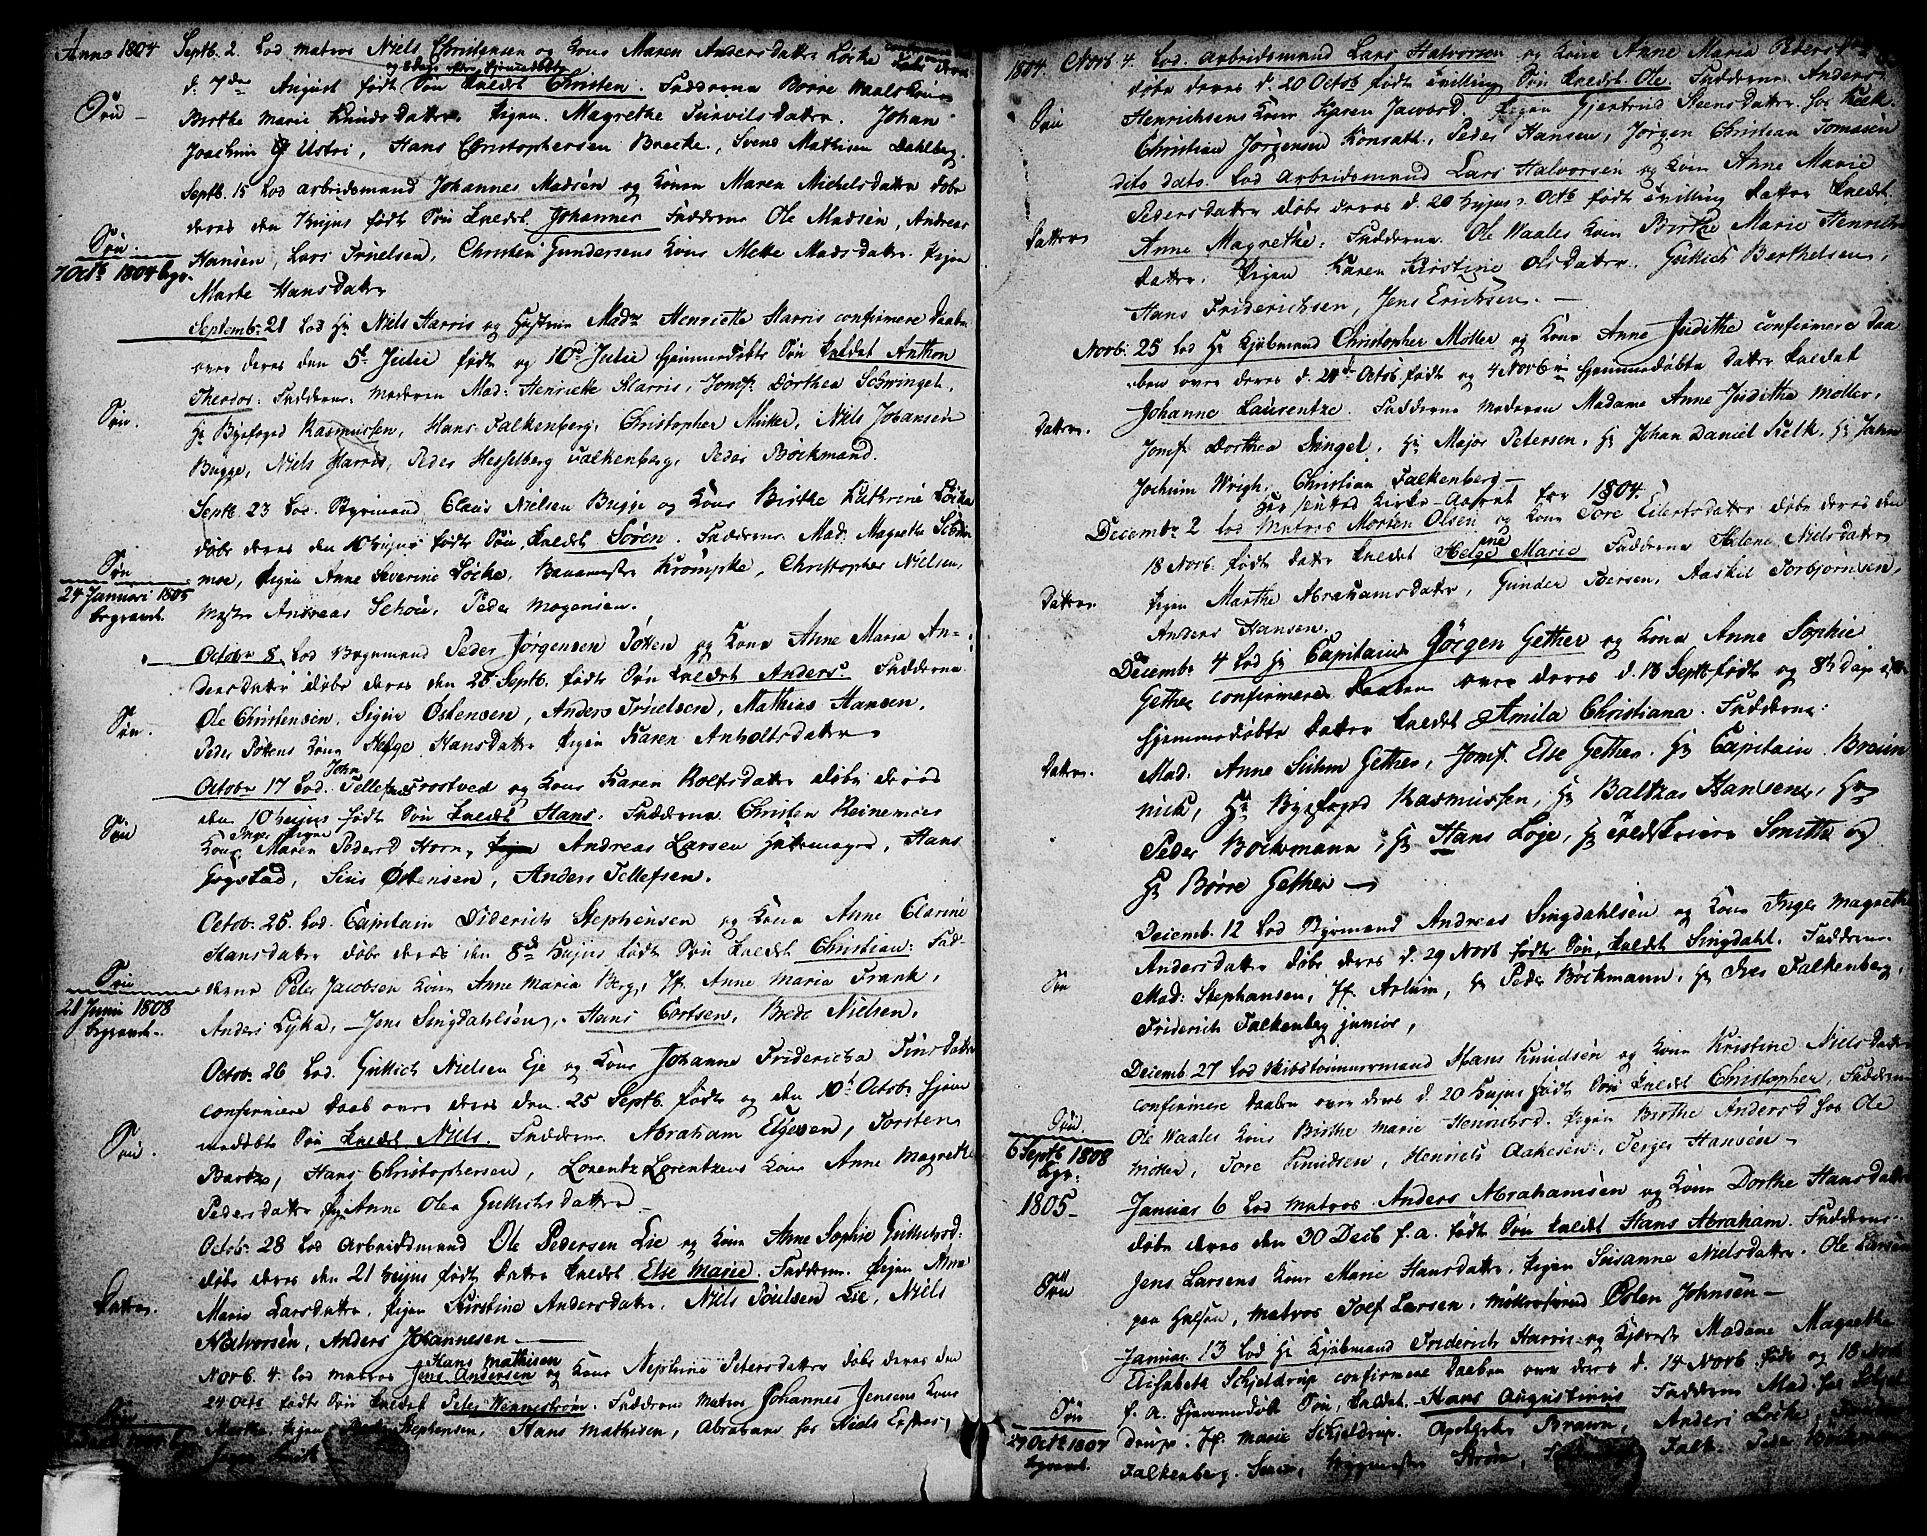 Anno 1804 Septb. 2. Lod matros Niels Christensen og Kone Maren Andersdatter Løcke confirmere
og 8 dage efter hjemmedøbte
d. 7de August født Søn kaldet Christen. Fadderne Børre Waalers Kone
Søn
Birthe Marie Knudsdatter. Pigen Magrethe Turvilsdatter. Johan
Joachim Ustri, Hans Christophersen Brecke, Svend Mathisen Dahlberg.
Septb. 15 Lod arbeidsmand Johannes Madsen og Konen Maren Michelsdatter døbe
deres den hujus født Søn kaldet Johannes Fadderne Ole Madsen, Andreas
Søn.
7 Octb 1804 begr.
Hansen, Lars Truelsen, Christen Gundersens Kone Mette Madsdatter. Pigen
Marte Hansdatter
Septemb. 21 Lod Hr Niels Harris og Hustrue Madme Henriette Harris confirmere Daaben
over deres den 5t Julii født og 10d Julii hjemmedøbte Søn kaldet Anthon
Theodor: Fadderne: moderen Mad: Henriette Harris, Jomf: Dorthea Schvingel,
Søn.
Hr Byefoged Rasmussen, Hans Falkenberg, Christopher Møller, Niels Johansen
Bugge, Niels Harris, Peder Hesselberg Falkenberg, Peder Bockmand.
Septb. 23 Lod Styrmand Claus Nielsen Bugge og Kone Birthe Kathrine Løcke
døbe deres den 10 hujus født Søn, kaldet Søren. Fadderne Mad: Magrethe
Søn
24 Januari 1805
begravet.
moe, Pigen Anne Severine Løcke, Baumester Krompke, Christopher Nielsen,
Mester Andreas Schou, Peder Mogensen.
Octobr 8 Lod Bogmand Peder Jørgensen Töken og Kone Anne Maria An-
dersdatter døbe deres den 28 Septb. født Søn kaldet Anders. Fadderne
Søn.
Ole Christensen, Signe Østensen, Anders Truelsen, Mathias Hansen,
Peder Tökens Kone Helge Hansdatter Pigen Karen Anholtsdatter
John
Octobr 17 Lod. Tellefsen Frostved og Kone Karen Rolfsdatter døbe deres
den 10 hujus født Søn kaldet Hans. Fadderne Christen Reinertsens
Søn
Kone Maren Pedersd Horn, Andreas Larsen Hattemager, Hans
Gogstad, Sivs Østensen, Anders Tellefsen.
Octob. 25. Lod. Capitain Diderich Stephensen og Kone Anne Clarine
Hansdatter døbe deres den 8d hujus født Søn kaldet Christian: Fad-
Søn
21 Junii 1808
begravet.
derne Peter Jacobsen Kone Anne Maria Berg, Jf. Anne Maria Frank,
Anders Lyka, Jens Singdahlsen, Hans Cortsen, Brede Nielsen.
Octob. 26 Lod. Gullich Nielsen Eje og Kone Johanne Fridericha Tinsdatter
confirmere Daab over deres den 25 Septb. født og den 10t Octobr hjem
Søn.
medøbte Søn kaldet Niels. Fadderne Abraham Elgesen, Torsten
Bartze, Hans Christophersen, Lorentz Lorentzens Kone Anne Magrethe
Pedersdatter, Pig. Anne Olea Gullichsdatter
Octob. 28 Lod Arbeidsmand Ole Pedersen Lie og Kone Anne Sophie Gullichsd:
døbe deres den 21 hujus født Datter kaldet Else Marie. Fadderne Pigen Anne
Datter.
Marie Larsdatter, Pigen Kirstine Andersdatter. Niels Poulsen Lie, Niels
Halvorsen, Anders Johannesen
Hans Mathisen
Novb. 4. Lod matros Jens Andersen og Kone Neptuine Petersdatter døbe deres den
24 Octb født Søn kaldet Peter Wennerstrøm. Fadderne matros Johannes Jensens Kone
Søn
Marthe, Pigen Stephensen, Hans Mathisen, Abraham hos Niels

1804. Novb 4. Lod. Arbeidsmand Lars Halvorsen og Konen Anne Maria Pedersdatter
døbe deres d. 20 Octob født tvilling Søn kaldet Ole. Fadderne Anders
Søn
Henrichsens Kone Karen Jacobsd. Pigen Gjertrud Steensdatter hos Kielk.
Christian Jørgensen Konrath, Peder Hansen, Jørgen Christian Tomasen
dito dato. Lod Arbeidsmand Lars Halvorsen og Kone Anne Marie
Pedersdatter døbe deres d. 20 hujus Octb født tvilling Datter kaldet
Datter
Anne Magrethe. Fadderne. Ole Waales Kone Birthe Marie Henrichs
datter. Pigen Karen Kirstine Olsdatter. Gullich Berthelsen,
Hans Friderichsen, Jens Erichsen.
Novb: 25 Lod Hr Kjøbmand Christopher Møller og Kone Anne Judithe confirmere Daa
ben over deres d. 21de Octob født og 4 Novb hjemmedøbte Datter kaldet
Datter.
Johanne Laurentze. Fadderne moderen Madame Anne Juditha Møller,
Jomf Dorthea Svingel, Hr Major Petersen, Hr Johan Daniel Kielk, Hr Johan
Jochum Wrigh, Christian Falkenberg
Her endtes Kirke-Aaret for 1804.
Decembr 2 Lod Matros Morten Olsen og Kone Tore Eilertsdatter døbe deres den
18 Novb. født Datter kaldet Helge Marie Fadderne Helene Nielsdatter
Datter.
Pigen Marthe Abrahamsdatter, Gunder Iversen, Aaskil Torbjørnsen,
Anders Hansen.
Decembr 4 Lod Hr Capitaine Jørgen Gether og Kone Anne Sophie
Gether confirmere Daaben over deres d. 18 Septb født og 8t Dage efter
hjemmedøbte Datter kaldet Amila Christiana. Fadderne:
Datter.
Mad: Anne Suhm Gether, Jomf. Else Gether, Hr Capitain Breün
nich, Hr Byefoged Rasmussen, Hr Baltzar Hansen, Hr
Peder Bockmann, Hr Hans Loje, Hr Feldskiær Smith og
Hr Børre Gether
Decemb. 12 Lod Styrmand Andreas Singdahlsen og Kone Inger Magrethe
Andersdatter døbe deres d. 29 Novb født Søn, kaldet Singdahl. Fadderne.
Søn
Mad: Stephansen, Jf. Arbum, Hr Peder Bockmann, Hr Ives Falkenberg,
Friderich Falkenberg junior,
Decemb. 27 Lod Skibstømmermand Hans Knudsen og Kone Kristine Nielsdatter
confirmere Daaben over deres d. 20 hujus født Søn kaldet Christopher, Fadderne
Søn.
6 Septb 1808
begr:
Ole Waales Kone Birthe Marie Henrichsd. Pigen Birthe Andersd hos Ole
Møller, Tore Knudsen, Henrich Aakesen, Terger Hansen
1805 Januar 6 Lod Matros Anders Abrahamsen og Kone Dorthe Hansdatter
døbe deres den 30 Decb f.a. født Søn kaldet Hans Abraham. Fadderne:
Søn
Jens Larsens Kone Marie Hansdatter, Pigen Susanne Nielsdatter. Ole Larsen
paa Halsen, matros Joef Larsen, Østen Johnsen
Januar. 13 Lod Hr Kjøbmand Friderich Harris og Kjæreste Madame Magrethe
Elisabeth Schjeldrup confirmere Daaben over deres d. 14 Novb født og 18 Novb
Søn
27 Octb 1807
begravet.
f.a. hjemmedøbt Søn, kaldet Hans Augustinus Fadderne Mad.
drup. Jf. Marie Schjeldrup. Apotheker Brawn, Anders Løcke,
Falkenberg. Bygmester Strøm, Falk. Peder Bockmann